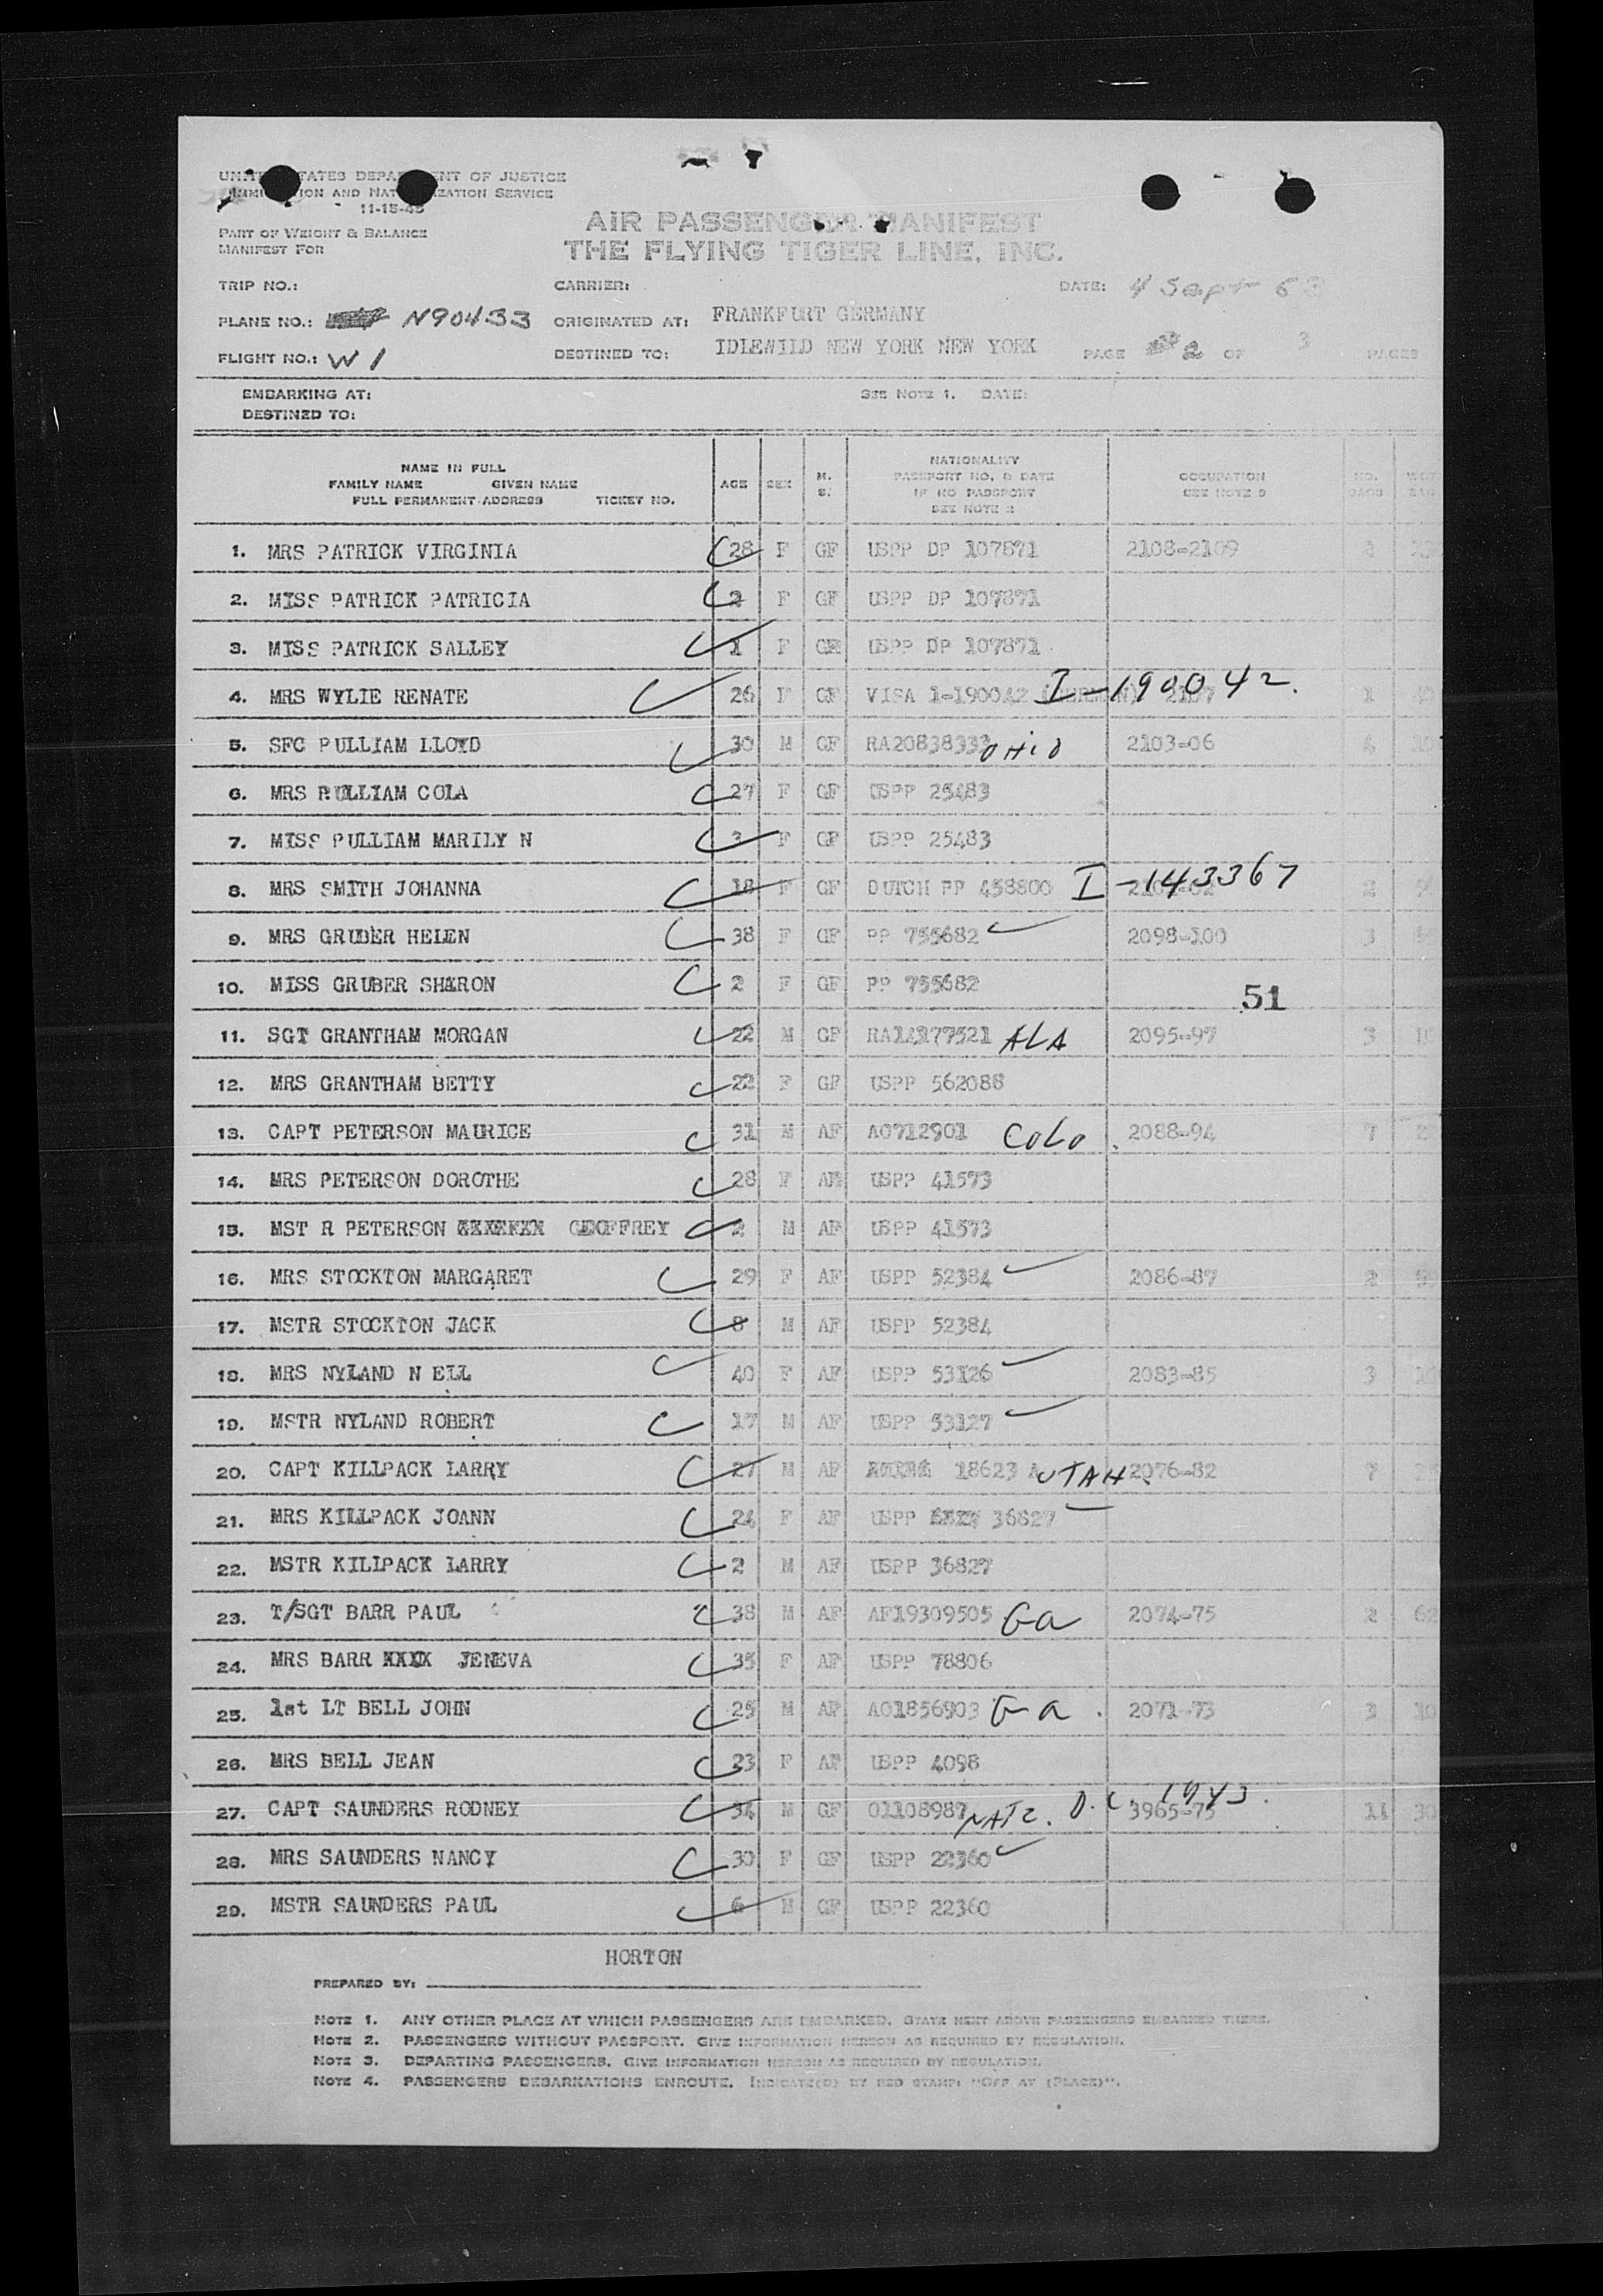 UNITED STATES DEPARTMENT OF JUSTICE
IMMIGRATION AND NATURALIZATION SERVICE
11-15-45
PART OF WEIGHT & BALANCE
MANIFEST FOR
AIR PASSENGER MANIFEST
THE FLYING TIGER LINE, INC.
TRIP NO.: CARRIER: DATE: 4 Sept 53
PLANE NO.: N90433 ORIGINATED AT: FRANKFURT GERMANY
FLIGHT NO.: W1 DESTINED TO: IDLEWILD NEW YORK NEW YORK PAGE 2 OF 3 PAGES
EMBARKING AT: SEE NOTE 1. DATE:
DESTINED TO:
NAME IN FULL
FAMILY NAME GIVEN NAME
FULL PERMANENT ADDRESS TICKET NO.
AGE SEX M. S.
NATIONALITY
PASSPORT NO. & DATE
IF NO PASSPORT
SEE NOTE 2
OCCUPATION
SEE NOTE 3
NO. BAGS
1. MRS PATRICK VIRGINIA 28 F GF USPP DP 107871 2108-2109
2. MISS PATRICK PATRICIA 2 F GF USPP DP 107871
3. MISS PATRICK SALLEY 1 F GF USPP DP 107871
4. MRS WYLIE RENATE 26 F GF VISA 1-190042 I-190042. 1
5. SFC PULLIAM LLOYD 30 M GF RA20838333 OHIO 2103-06 4
6. MRS PULLIAM COLA 27 F GF USPP 25483
7. MISS PULLIAM MARILY N 3 F GF USPP 25483
8. MRS SMITH JOHANNA 18 F GF DUTCH PP 458800 I-143367 2
9. MRS GRUBER HELEN 38 F GF PP 755682 2098-100 3
10. MISS GRUBER SHARON 2 F GF PP 755682
51
11. SGT GRANTHAM MORGAN 22 M GF RA14177521 ALA 2095-97 3
12. MRS GRANTHAM BETTY 22 F GF USPP 562088
13. CAPT PETERSON MAURICE 31 M AF AO712901 COLO. 2088-94 7
14. MRS PETERSON DOROTHE 28 F AF USPP 41573
15. MST R PETERSON GEOFFREY 2 M AF USPP 41573
16. MRS STOCKTON MARGARET 29 F AF USPP 52384 2086-87 2
17. MSTR STOCKTON JACK 8 M AF USPP 52384
18. MRS NYLAND N ELL 40 F AF USPP 53126 2083-85 3
19. MSTR NYLAND ROBERT 17 M AF USPP 53127
20. CAPT KILLPACK LARRY 27 M AF 18623 A UTAH. 2076-82 7
21. MRS KILLPACK JOANN 24 F AF USPP 36827
22. MSTR KILLPACK LARRY 2 M AF USPP 36827
23. T/SGT BARR PAUL 38 M AF AF19309505 Ga 2074-75 2 62
24. MRS BARR XXXX JENEVA 35 F AF USPP 78806
25. 1st LT BELL JOHN 25 M AF AO1856903 Ga. 2071-73 3 30
26. MRS BELL JEAN 23 F AF USPP 4098
27. CAPT SAUNDERS RODNEY 34 M GF 01108987 NATZ. D.C. 1943. 3965-75 11 30
28. MRS SAUNDERS NANCY 30 F GF USPP 22360
29. MSTR SAUNDERS PAUL 6 M GF USPP 22360
HORTON
PREPARED BY:
NOTE 1. ANY OTHER PLACE AT WHICH PASSENGERS ARE EMBARKED. STATE NEXT ABOVE PASSENGERS EMBARKED THERE.
NOTE 2. PASSENGERS WITHOUT PASSPORT. GIVE INFORMATION HEREON AS REQUIRED BY REGULATION.
NOTE 3. DEPARTING PASSENGERS. GIVE INFORMATION HEREON AS REQUIRED BY REGULATION.
NOTE 4. PASSENGERS DEBARKATIONS ENROUTE. INDICATE(D) BY RED STAMP: "OFF AT (PLACE)".